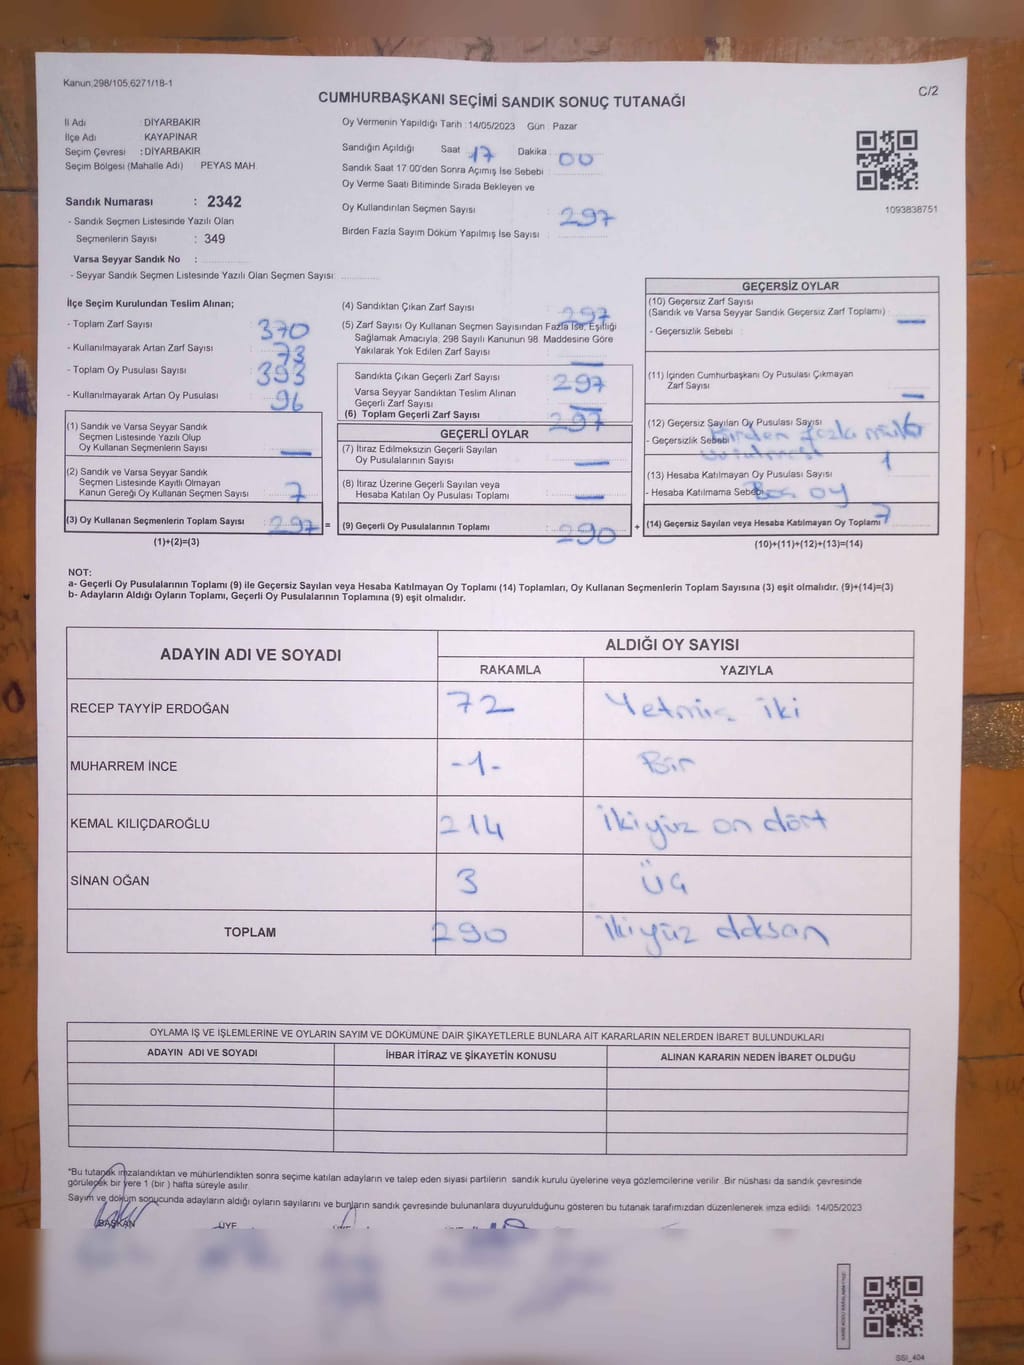 Kanun;298/105,6271/18-1
C/2
CUMHURBAŞKANI SEÇİMİ SANDIK SONUÇ TUTANAĞI
İl Adı : DİYARBAKIR
İlçe Adı KAYAPINAR
Seçim Çevresi : DİYARBAKIR
Seçim Bölgesi (Mahalle Adı) PEYAS MAH.
Sandık Numarası : 2342
- Sandık Seçmen Listesinde Yazılı Olan
Seçmenlerin Sayısı : 349
Varsa Seyyar Sandık No :
- Seyyar Sandık Seçmen Listesinde Yazılı Olan Seçmen Sayısı
Oy Vermenin Yapıldığı Tarih : 14/05/2023 Gün : Pazar
Sandığın Açıldığı Saat 17 Dakika 00
Sandık Saat 17:00'den Sonra Açımış İse Sebebi :
Oy Verme Saati Bitiminde Sırada Bekleyen ve
Oy Kullandırılan Seçmen Sayısı : 297
Birden Fazla Sayım Döküm Yapılmış İse Sayısı :
1093838751
İlçe Seçim Kurulundan Teslim Alınan;
- Toplam Zarf Sayısı 370
- Kullanılmayarak Artan Zarf Sayısı 73
- Toplam Oy Pusulası Sayısı 393
- Kullanılmayarak Artan Oy Pusulası 96
(1) Sandık ve Varsa Seyyar Sandık
Seçmen Listesinde Yazılı Olup
Oy Kullanan Seçmenlerin Sayısı —
(2) Sandık ve Varsa Seyyar Sandık
Seçmen Listesinde Kayıtlı Olmayan
Kanun Gereği Oy Kullanan Seçmen Sayısı 7
(3) Oy Kullanan Seçmenlerin Toplam Sayısı : 297 =
(1)+(2)=(3)
(4) Sandıktan Çıkan Zarf Sayısı 297
(5) Zarf Sayısı Oy Kullanan Seçmen Sayısından Fazla İse, Eşitliği
Sağlamak Amacıyla; 298 Sayılı Kanunun 98. Maddesine Göre
Yakılarak Yok Edilen Zarf Sayısı —
Sandıkta Çıkan Geçerli Zarf Sayısı 297
Varsa Seyyar Sandıktan Teslim Alınan
Geçerli Zarf Sayısı —
(6) Toplam Geçerli Zarf Sayısı 297
GEÇERLİ OYLAR
(7) İtiraz Edilmeksizin Geçerli Sayılan
Oy Pusulalarının Sayısı —
(8) İtiraz Üzerine Geçerli Sayılan veya
Hesaba Katılan Oy Pusulası Toplamı —
(9) Geçerli Oy Pusulalarının Toplamı 290 +
GEÇERSİZ OYLAR
(10) Geçersiz Zarf Sayısı
(Sandık ve Varsa Seyyar Sandık Geçersiz Zarf Toplamı) : —
- Geçersizlik Sebebi :
(11) İçinden Cumhurbaşkanı Oy Pusulası Çıkmayan
Zarf Sayısı —
(12) Geçersiz Sayılan Oy Pusulası Sayısı 6
- Geçersizlik Sebebi Birden fazla mühür
(13) Hesaba Katılmayan Oy Pusulası Sayısı 1
- Hesaba Katılmama Sebebi Boş oy
(14) Geçersiz Sayılan veya Hesaba Katılmayan Oy Toplamı 7
(10)+(11)+(12)+(13)=(14)
NOT:
a- Geçerli Oy Pusulalarının Toplamı (9) ile Geçersiz Sayılan veya Hesaba Katılmayan Oy Toplamı (14) Toplamları, Oy Kullanan Seçmenlerin Toplam Sayısına (3) eşit olmalıdır. (9)+(14)=(3)
b- Adayların Aldığı Oyların Toplamı, Geçerli Oy Pusulalarının Toplamına (9) eşit olmalıdır.
ADAYIN ADI VE SOYADI ALDIĞI OY SAYISI
RAKAMLA YAZIYLA
RECEP TAYYİP ERDOĞAN 72 Yetmiş iki
MUHARREM İNCE -1- Bir
KEMAL KILIÇDAROĞLU 214 ikiyüz on dört
SİNAN OĞAN 3 Üç
TOPLAM 290 ikiyüz doksan
OYLAMA İŞ VE İŞLEMLERİNE VE OYLARIN SAYIM VE DÖKÜMÜNE DAİR ŞİKAYETLERLE BUNLARA AİT KARARLARIN NELERDEN İBARET BULUNDUKLARI
ADAYIN ADI VE SOYADI İHBAR İTİRAZ VE ŞİKAYETİN KONUSU ALINAN KARARIN NEDEN İBARET OLDUĞU
"Bu tutanak imzalandıktan ve mühürlendikten sonra seçime katılan adayların ve talep eden siyasi partilerin sandık kurulu üyelerine veya gözlemcilerine verilir. Bir nüshası da sandık çevresinde
görülecek bir yere 1 (bir ) hafta süreyle asılır.
Sayım ve döküm sonucunda adayların aldığı oyların sayılarını ve bunların sandık çevresinde bulunanlara duyurulduğunu gösteren bu tutanak tarafımızdan düzenlenerek imza edildi. 14/05/2023
BAŞKAN ÜYE
SSI_404